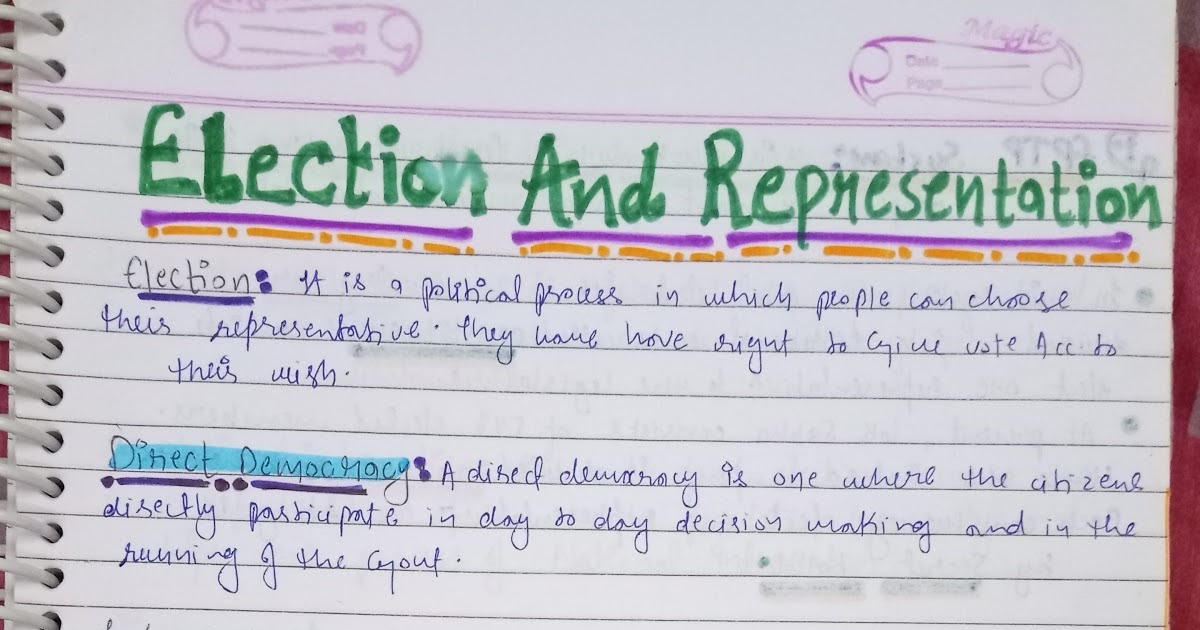 Magic
Date
Page
Election And Representation
Election: It is a political process in which people can choose
their representative. they have have right to give vote Acc to
their wish.
Direct Democracy: A direct democracy is one where the citizens
directly participate in day to day decision making and in the
running of the Govt.